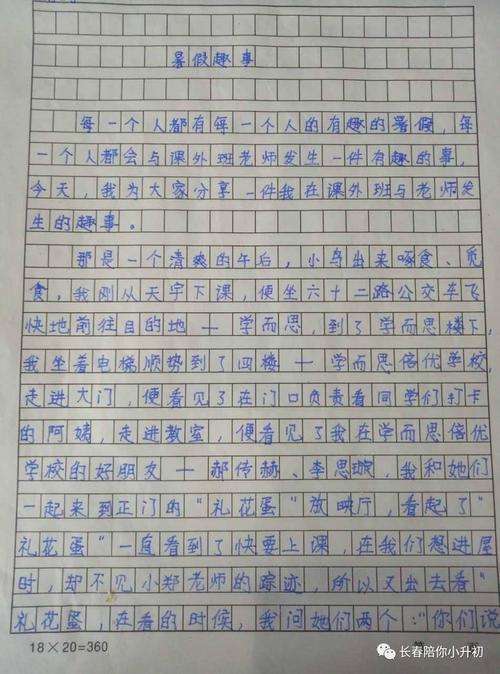 暑假趣事
每一个人都有每一个人的有趣的暑假，每
一个人都会与课外班老师发生一件有趣的事，
今天，我为大家分享一件我在课外班与老师发
生的趣事。
那是一个清爽的午后，小鸟出来啄食、觅
食，我刚从天宇下课，便坐六十二路公交车飞
快地前往目的地一学而思，到了学而思楼下，
我坐着电梯顺势到了四楼一学而思倍优学校，
走进大门，便看见了在门口负责看同学们打卡
的阿姨，走进教室，便看见了我在学而思倍优
学校的好朋友一郝传赫、李思璇，我和她们
一起来到正门的“礼花蛋”放映厅，看起了”
礼花蛋”一直看到了快要上课，在我们想进屋
时，却不见小郑老师的踪迹，所以又出去看“
礼花蛋，在看的时候，我问她们两个：“你们说
18×20=360
长春陪你小升初